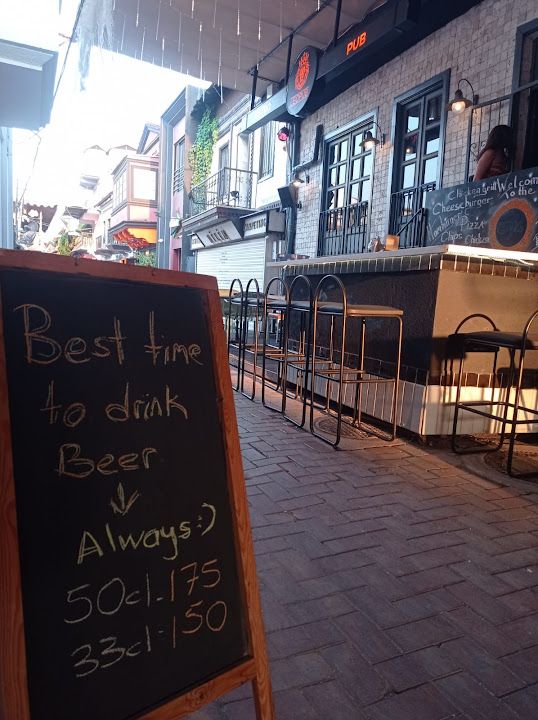 Best time
to drink
Beer
Always:)
50cl-175
33cl-150
PUB
Welcome
To the
Chicken
Cheeseburger
PizzA
Chips Chicken